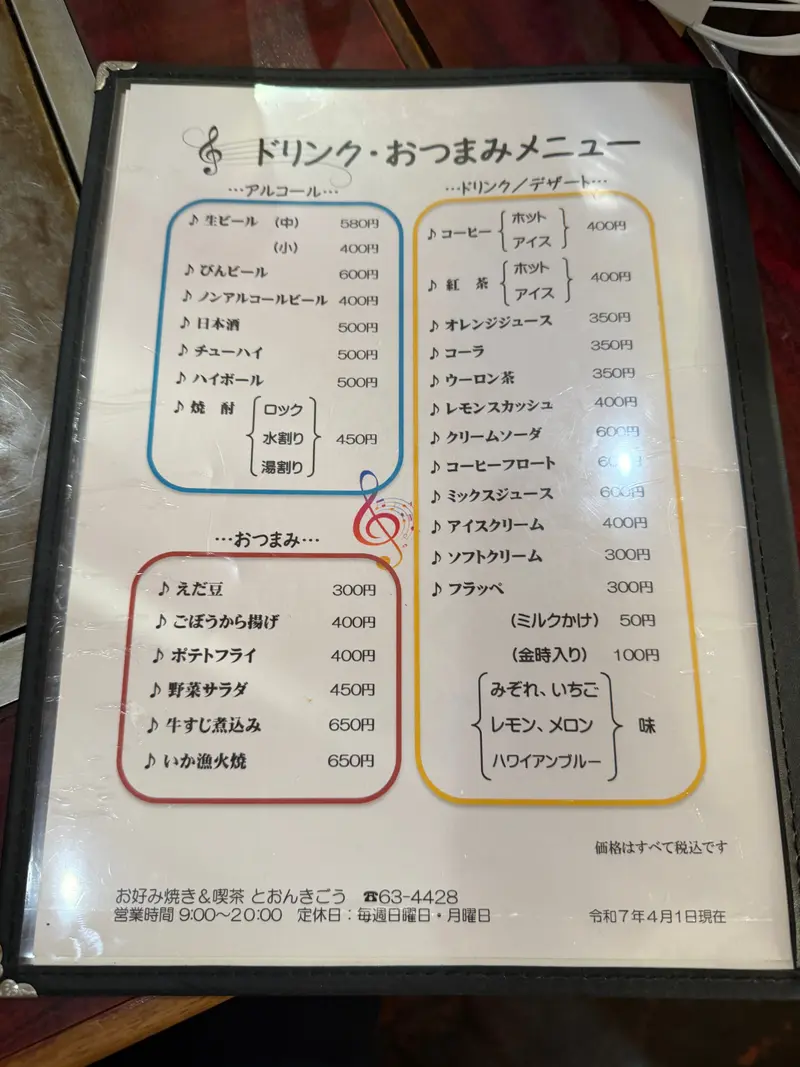 ドリンク・おつまみメニュー
…アルコール…
♪生ビール (中) 580円
(小) 400円
♪びんビール 600円
♪ノンアルコールビール 400円
♪日本酒 500円
♪チューハイ 500円
♪ハイボール 500円
♪焼 酎 ロック
水割り 450円
湯割り
…おつまみ…
♪えだ豆 300円
♪ごぼうから揚げ 400円
♪ポテトフライ 400円
♪野菜サラダ 450円
♪牛すじ煮込み 650円
♪いか漁火焼 650円
…ドリンク/デザート…
♪コーヒー ホット
アイス 400円
♪紅 茶 ホット
アイス 400円
♪オレンジジュース 350円
♪コーラ 350円
♪ウーロン茶 350円
♪レモンスカッシュ 400円
♪クリームソーダ 600円
♪コーヒーフロート
♪ミックスジュース 600円
♪アイスクリーム 400円
♪ソフトクリーム 300円
♪フラッペ 300円
(ミルクかけ) 50円
(金時入り) 100円
みぞれ、いちご
レモン、メロン 味
ハワイアンブルー
価格はすべて税込です
お好み焼き&喫茶 とおんきごう ☎63-4428
営業時間 9:00~20:00 定休日:毎週日曜日・月曜日
令和7年4月1日現在